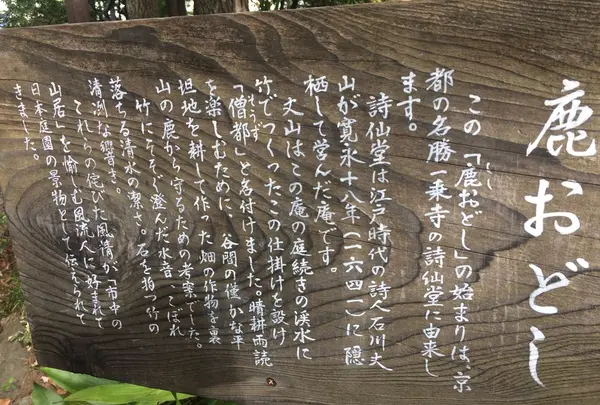 鹿おどし
この「鹿おどし」の始まりは、京
しし
都の名勝一乗寺の詩仙堂に由来し
ます。
詩仙堂は江戸時代の詩人石川丈
山が寛永十八年(一六四一)に隠
栖して営んだ庵です。
丈山はこの庵の庭続きの渓水に
竹でつくったこの仕掛けを設け
そうず
「僧都」と名付けました。晴耕雨読
を楽しむために、谷間の僅かな平
坦地を耕して作った畑の作物を裏
山の鹿から守るための考案でした。
竹にそそぐ澄んだ水音、こぼれ
落ちる清水の潔さ。石を拍つ竹の
清冽な響き。
これらの侘びた風情が「市中の
山居」を愉しむ風流人に好まれて
日本庭園の景物として伝えられて
きました。